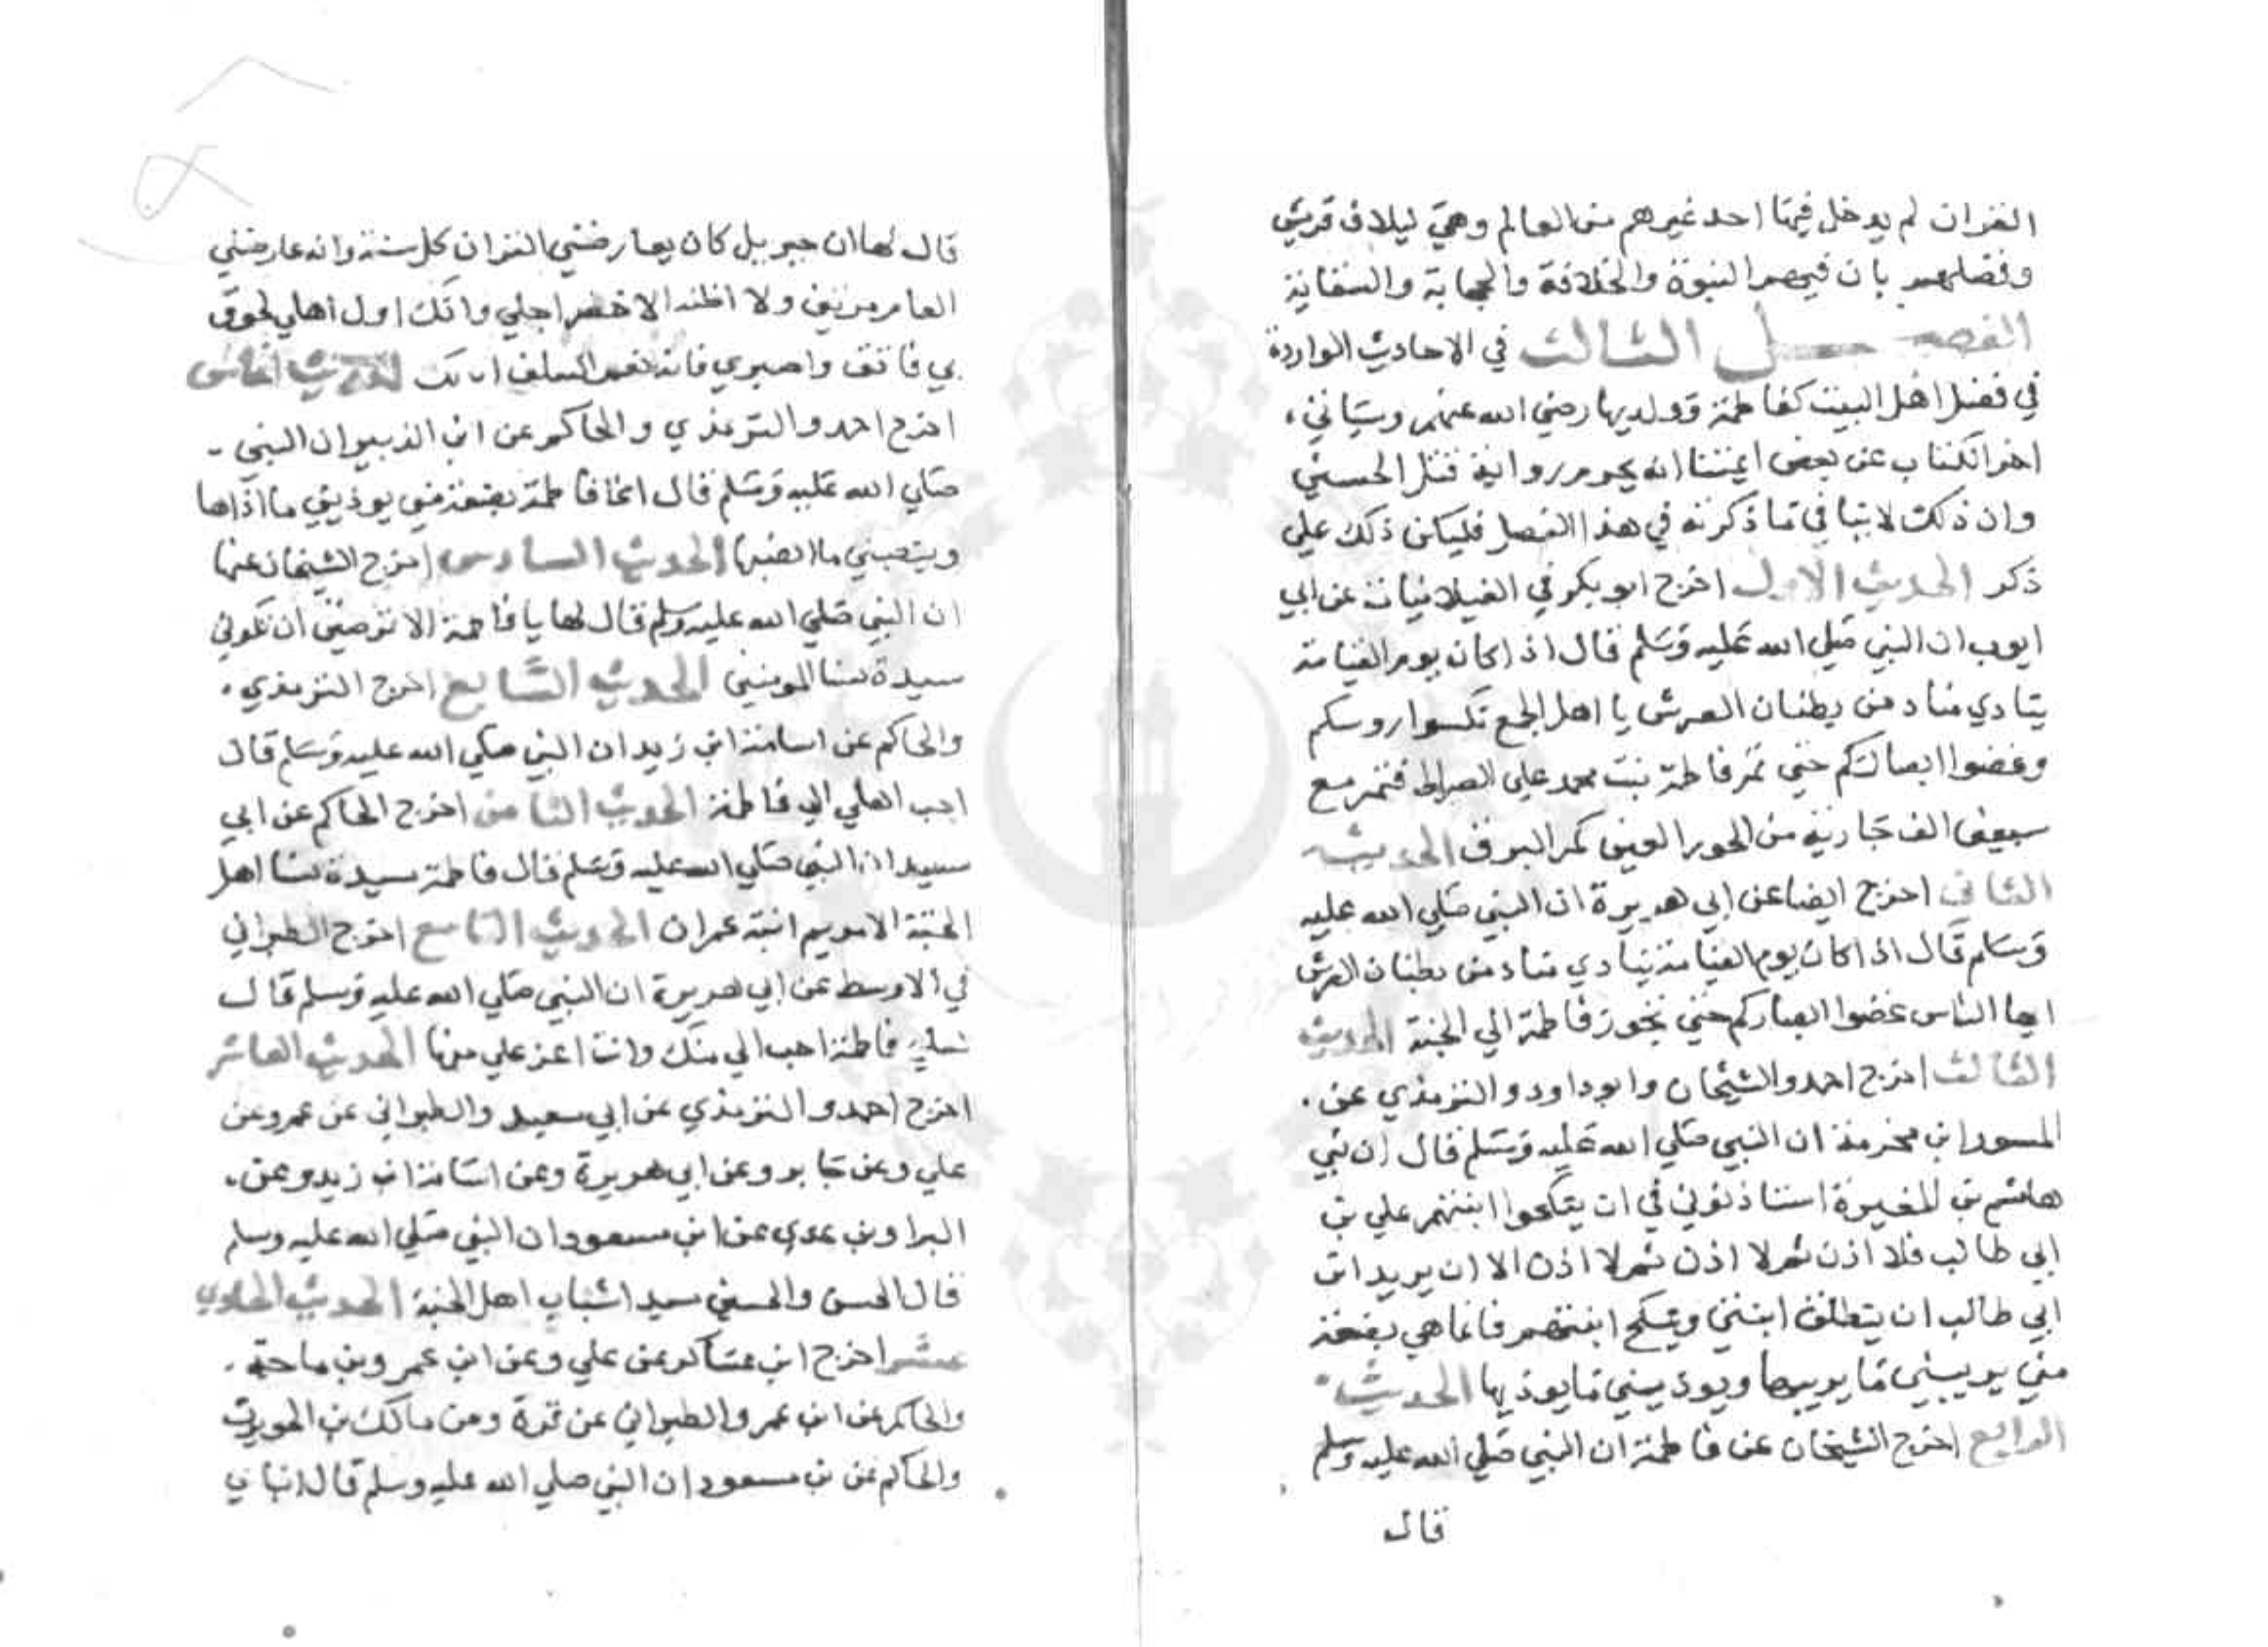 القران لم يدخل فيها احد غيرهم من العالم وهي ليلاف قريش
وفضلهم بان فيهم النبوة والخلافة والحجابة والسقاية
الفصل الثالث في الاحاديث الواردة
في فضل اهل البيت كفاطمة وولديها رضي الله عنهم وسياتي
اخر الكتاب عن بعض ايمتنا انه يحرم رواية قتل الحسين
وان ذلك لا ينافي ما ذكرته في هذا الفصل فليكن ذلك علي
ذكر الحديث الاول اخرج ابو بكر في الغيلانيات عن ابي
ايوب ان النبي صلي الله عليه وسلم قال اذا كان يوم القيامة
ينادي مناد من بطنان العرش يا اهل الجمع نكسوا روسكم
وغضوا ابصاركم حتي تمر فاطمة بنت محمد علي الصراط فتمر مع
سبعين الف جارية من الحور العين كمر البرق الحديث
الثاني اخرج ايضا عن ابي هريرة ان النبي صلي الله عليه
وسلم قال اذا كان يوم القيامة ينادي مناد من بطنان العرش
ايها الناس غضوا ابصاركم حتي تجوز فاطمة الي الجنة الحديث
الثالث اخرج احمد والشيخان وابو داود والترمذي عن
المسور ابن مخرمة ان النبي صلي الله عليه وسلم قال ان بني
هاشم بن المغيرة استاذنوني في ان ينكحوا ابنتهم علي بن
ابي طالب فلا اذن ثم لا اذن ثم لا اذن الا ان يريد ابن
ابي طالب ان يتطلق ابنتي وينكح ابنتهم فانما هي بضعة
مني يريبني ما يريبها ويوذيني ما يوذيها الحديث
الرابع اخرج الشيخان عن فاطمة ان النبي صلي الله عليه وسلم
قال
قال لها ان جبريل كان يعارضني القران كل سنة وانه عارضني
العام مرتين ولا اظنه الا حضر اجلي وانك اول اهلي لحوق
بي فاتق واصبري فانه نعم السلف انا لك الحديث الخامس
اخرج احمد والترمذي والحاكم عن ابن الزبير ان النبي
صلي الله عليه وسلم قال انما فاطمة بضعة مني يوذيني ما اذاها
وينصبني ما انصبها الحديث السادس اخرج الشيخان عنها
ان النبي صلي الله عليه وسلم قال لها يا فاطمة الا ترضين ان تكوني
سيدة نسا المومنين الحديث السابع اخرج الترمذي
والحاكم عن اسامة ابن زيد ان النبي صلي الله عليه وسلم قال
احب اهلي الي فاطمة الحديث الثامن اخرج الحاكم عن ابي
سعيد ان النبي صلي الله عليه وسلم قال فاطمة سيدة نسا اهل
الجنة الا مريم ابنة عمران الحديث التاسع اخرج الطبراني
في الاوسط عن ابي هريرة ان النبي صلي الله عليه وسلم قال
لعلي فاطمة احب الي منك وانت اعز علي منها الحديث العاشر
اخرج احمد والترمذي عن ابي سعيد والطبراني عن عمر وعن
علي وعن جابر وعن ابي هريرة وعن اسامة ابن زيد وعن
البرا وبن عدي عن ابن مسعود ان النبي صلي الله عليه وسلم
قال الحسن والحسين سيدا شباب اهل الجنة الحديث الحادي
عشر اخرج ابن عساكر عن علي وعن ابن عمر وبن ماجة
والحاكم عن ابن عمر والطبراني عن قرة وعن مالك بن الحويرث
والحاكم عن بن مسعود ان النبي صلي الله عليه وسلم قال ابناي